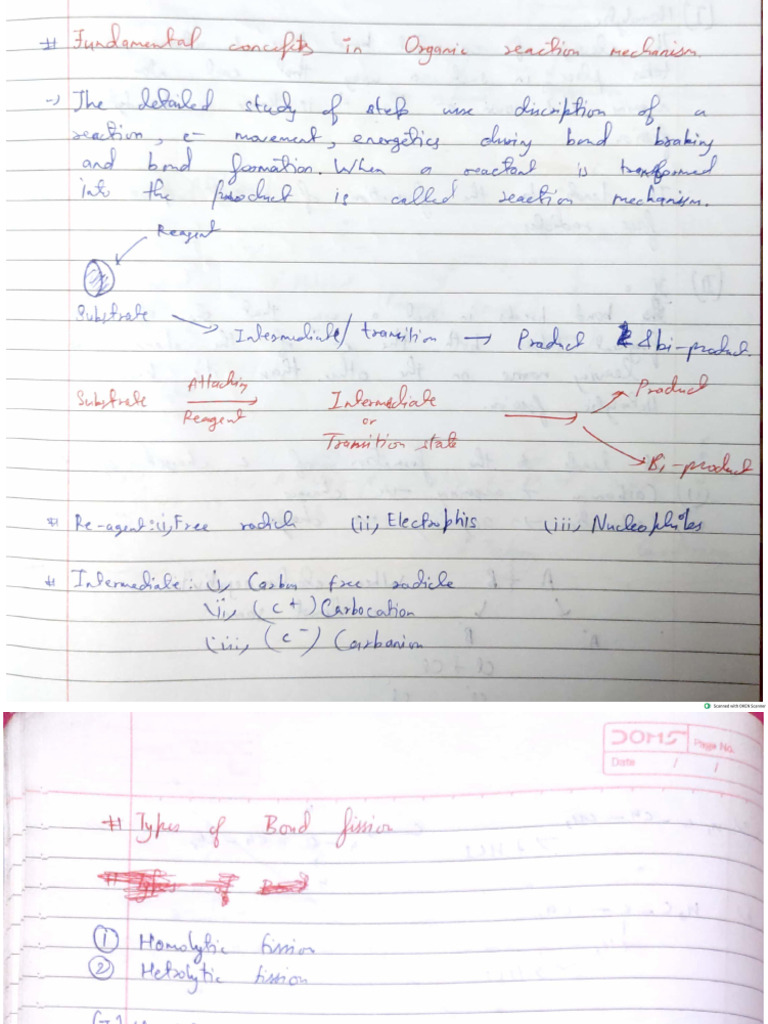 # Fundamental concepts in Organic reaction mechanism.
→ The detailed study of step wise discription of a
reaction, e- movement, energetics during bond braking
and bond formation. When a reactant is transformed
into the product is called reaction mechanism.
Reagent
Substrate
Intermediate/ transition → Product & bi-product.
Substrate Attacking Reagent → Intermediate or Transition state → Product
Bi-product
# Re-agent: (i) Free radich (ii) Electrophis (iii) Nucleophiles
# Intermediate: (i) Carbon free radicle
(ii) (c+) Carbocation
(iii) (c-) Carbanion
Scanned with OKEN Scanner
DOMS Page No.
Date / /
# Types of Bond fission
① Homolytic fission
② Hetrolytic fission